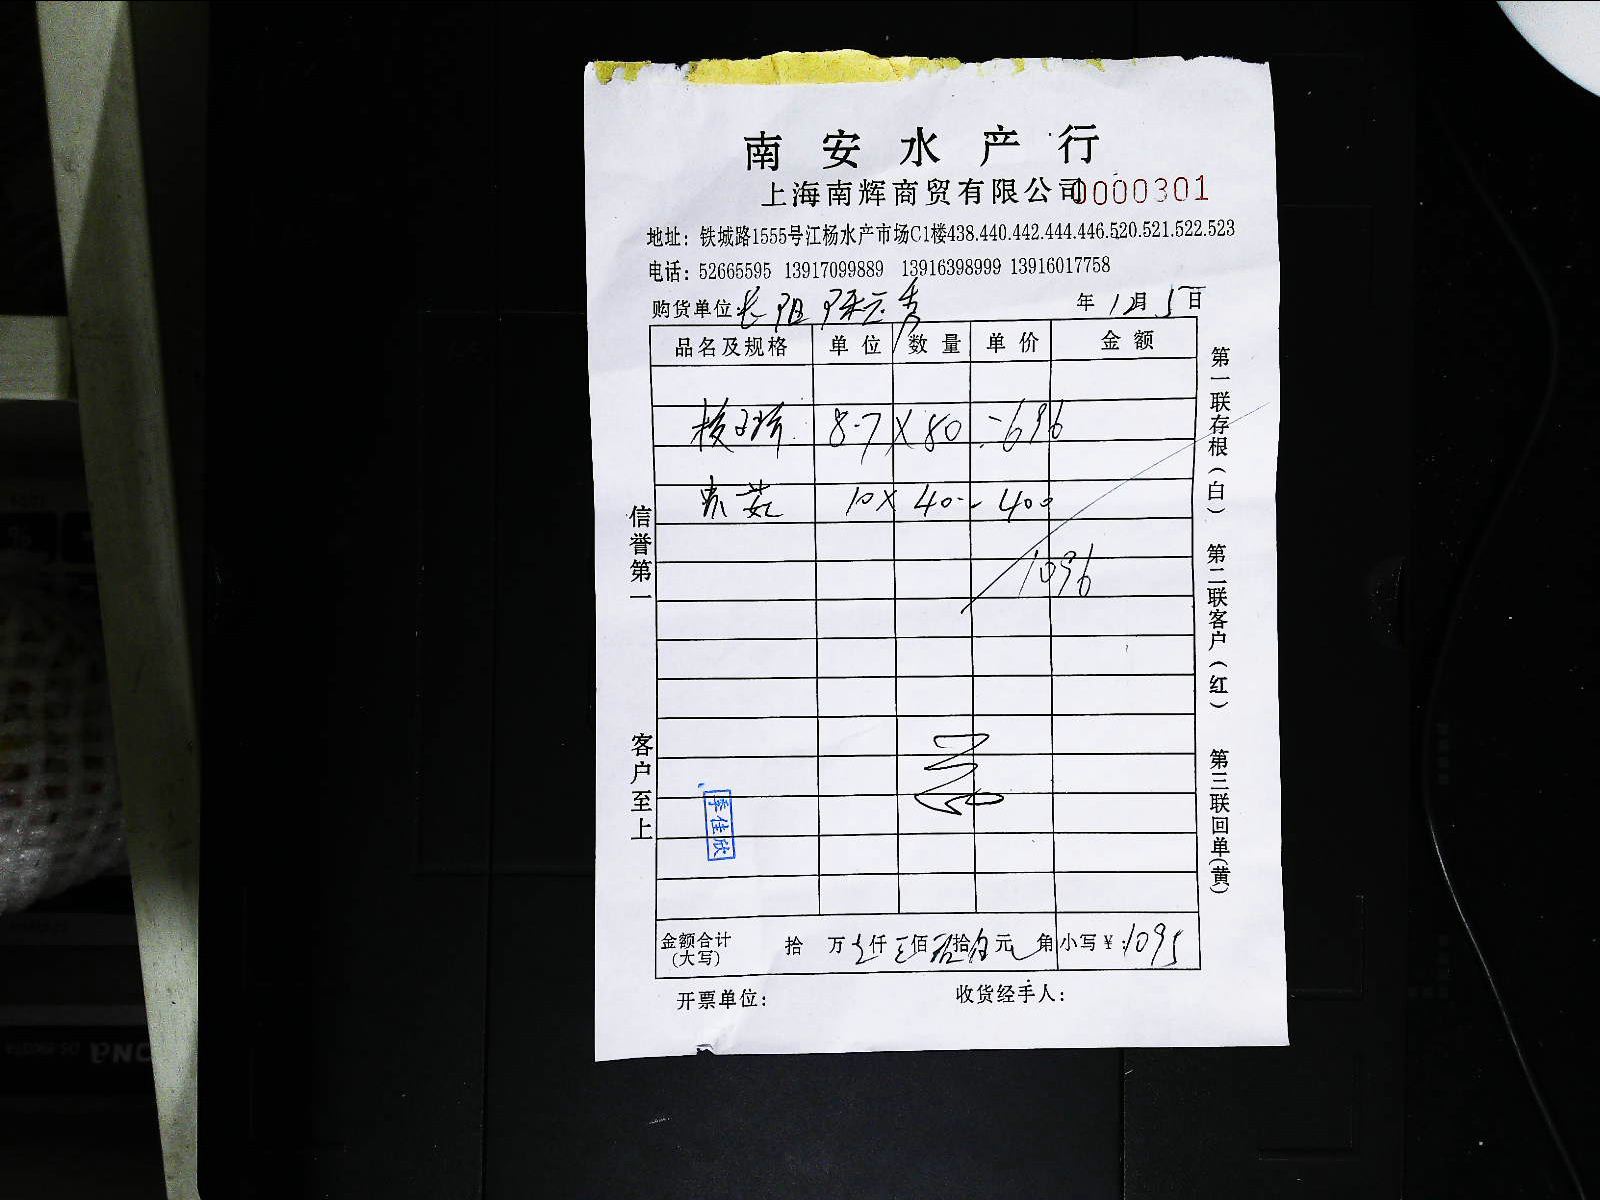 南安水产行
上海南辉商贸有限公司 0000301
地址：铁城路1555号江杨水产市场C1楼438.440.442.444.446.520.521.522.523
电话：52665595 13917099889 13916398999 13916017758
购货单位： 年 12月5日
品名及规格 单位 数量 单价 金额
8.7×80=696
10×40-400
1096
信誉第一
客户至上
李佳欣
第一联存根（白） 第二联客户（红） 第三联回单（黄）
金额合计（大写） 拾 万 仟 佰 拾 元 角 小写￥：1095
开票单位： 收货经手人：